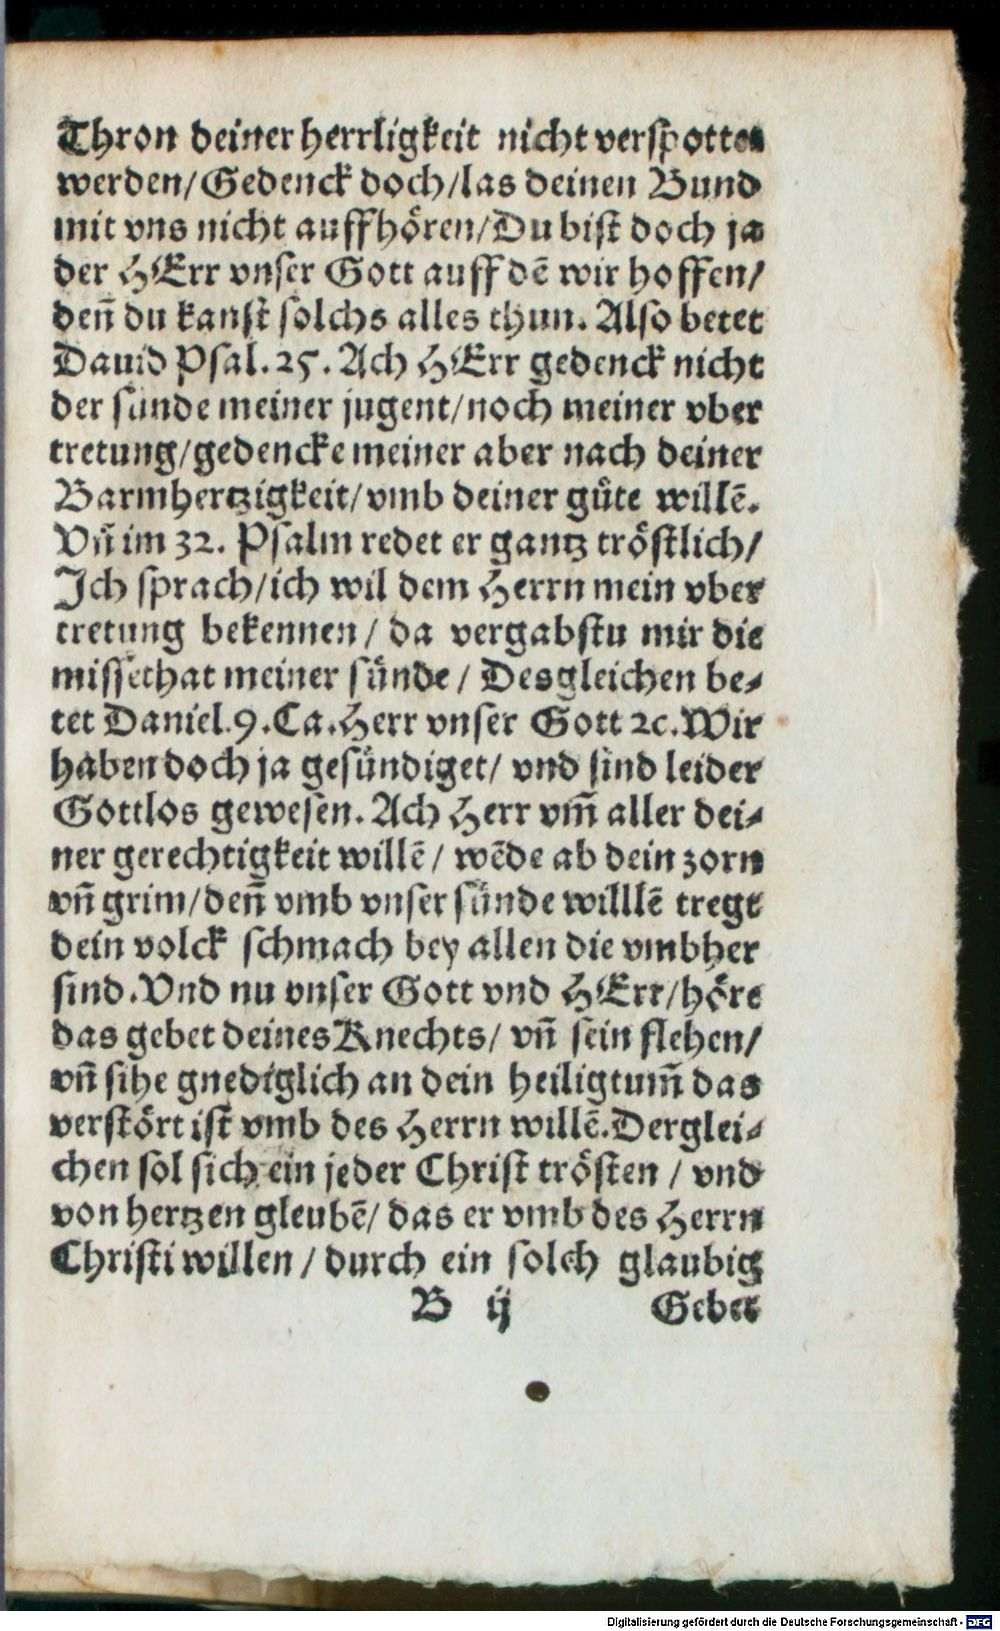 Thron deiner herrligkeit nicht verspottet
werden/Gedenck doch/las deinen Bund
mit vns nicht auffhören/Du bist doch ja
der HErr vnser Gott auff dē wir hoffen/
deñ du kanst solchs alles thun. Also betet
Dauid Psal. 25. Ach HErr gedenck nicht
der sünde meiner jugent/noch meiner vber
tretung/gedencke meiner aber nach deiner
Barmhertzigkeit/vmb deiner güte willē.
Vñ im 32. Psalm redet er gantz tröstlich/
Ich sprach/ich wil dem Herrn mein vber
tretung bekennen/ da vergabstu mir die
missethat meiner sünde / Desgleichen be-
tet Daniel.9.Ca.Herr vnser Gott ꝛc.Wir
haben doch ja gesündiget/ vnd sind leider
Gottlos gewesen. Ach Herr vm̃ aller dei-
ner gerechtigkeit willē/ wēde ab dein zorn
vñ grim/deñ vmb vnser sünde willlē tregt
dein volck schmach bey allen die vmbher
sind.Vnd nu vnser Gott vnd HErr/höre
das gebet deines Knechts/ vñ sein flehen/
vñ sihe gnediglich an dein heiligtum̃ das
verstört ist vmb des Herrn willē.Derglei-
chen sol sich ein jeder Christ trösten / vnd
von hertzen gleubē/ das er vmb des Herrn
Christi willen / durch ein solch glaubig
B ij Gebet
Digitalisierung gefördert durch die Deutsche Forschungsgemeinschaft - DFG